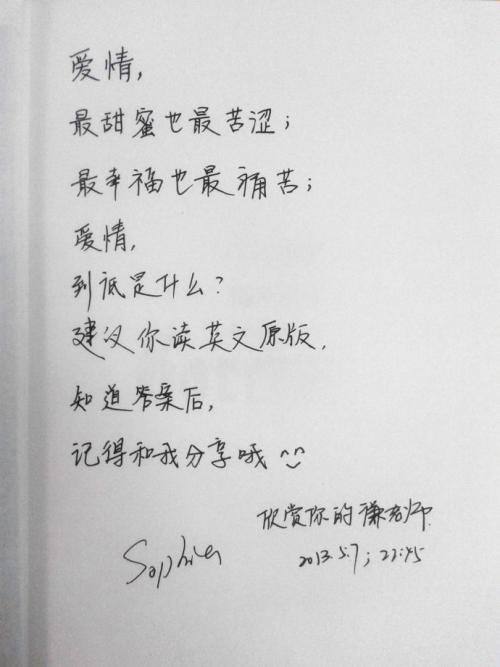 爱情,
最甜蜜也最苦涩;
最幸福也最痛苦;
爱情,
到底是什么?
建议你读英文原版,
知道答案后,
记得和我分享哦 ^^
欣赏你的谦老师
Sophia
2013.5.7; 22:45